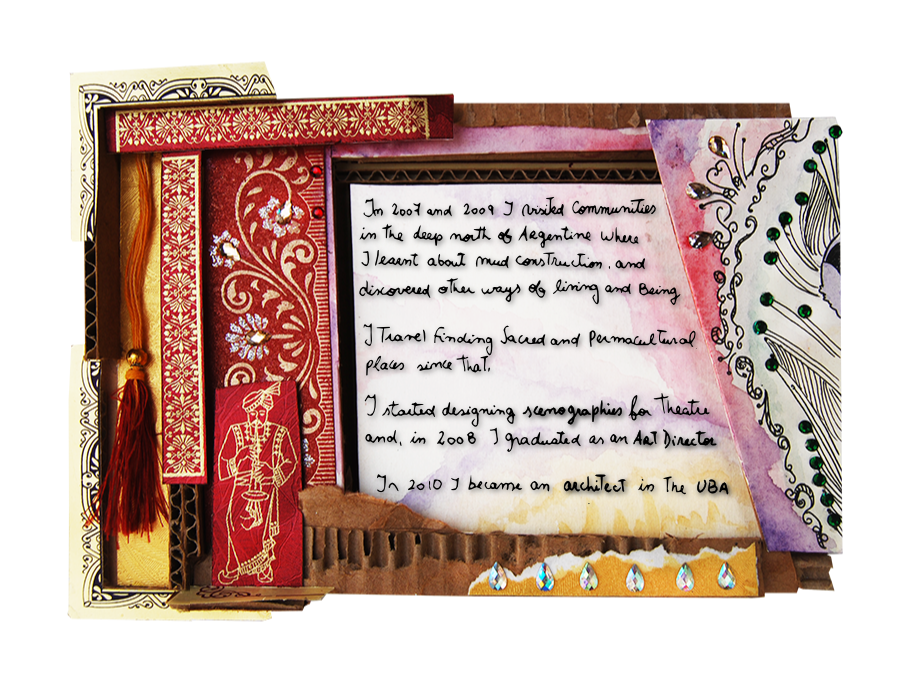 In 2007 and 2009 I visited Communities
in the deep north of Argentine where
I learnt about mud construction, and
discovered other ways of living and Being
I Travel Finding Sacred and Permacultural
places since that.
I started designing scenographies for Theatre
and, in 2008 I graduated as an Art Director
In 2010 I became an architect in the UBA